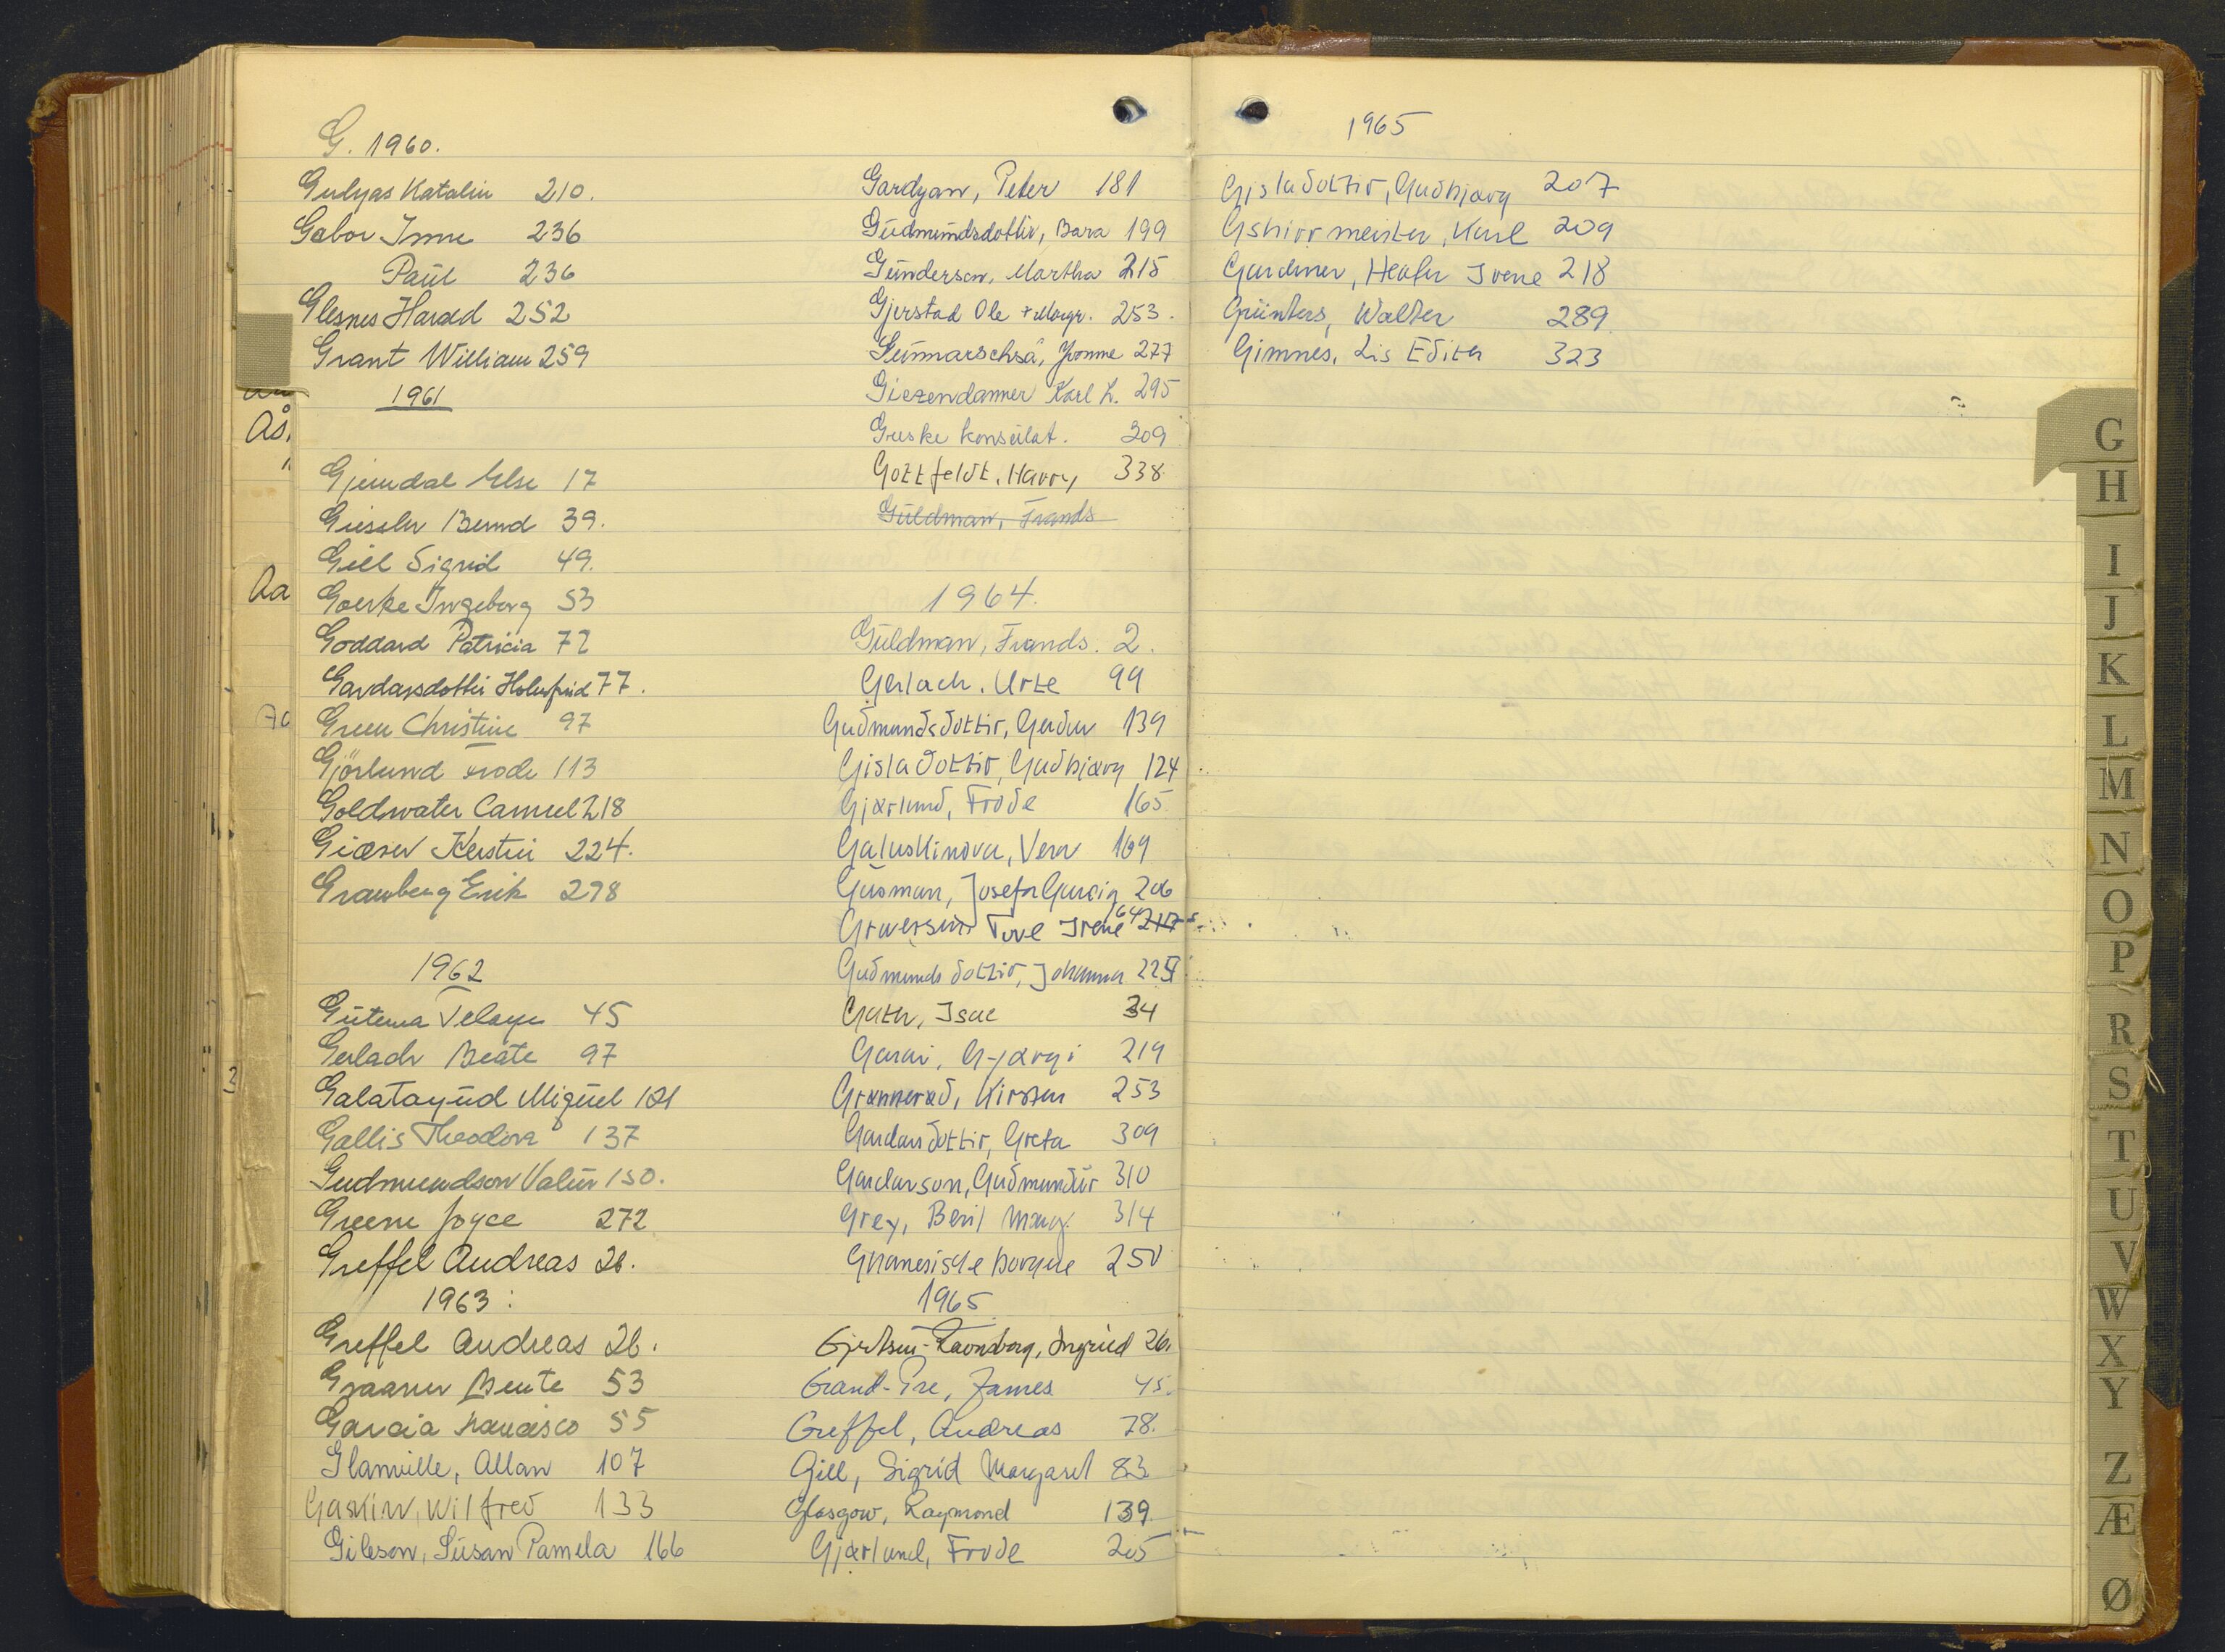 G. 1960.
Gulyas Katalin 210.
Gabor Imre 236
Paul 236
Glesnes Harald 252
Grant William 259
1961
Gjemdal Else 17
Giessler Bernd 39.
Gill Sigrid 49.
Goerke Ingeborg 53
Goddard Patricia 72
Gardarsdottir Holmfrid 77.
Green Christine 97
Gjörlund Frode 113
Goldwater Camuel 218
Giærer Kerstin 224.
Gramberg Erik 278
1962
Gutema Telaye 45
Gerlach Beate 97
Galatayud Miguel 121
Gallis Theodora 137
Gudmundson Valur 150.
Greene Joyce 272
Greffel Andreas 26.
1963:
Greffel Andreas 26.
Graarer Bente 53
Garcia Francisco 55
Glanville, Allan 107
Gaskin, Wilfred 133
Gibson, Susan Pamela 166
Gardyan, Peter 181
Gudmundsdottir, Bara 199
Gundersen, Martha 215
Gjerstad Ole + Margr. 253.
Yvonne 277
Giezendanner Karl H. 295
Græske konsulat. 309
Gottfeldt, Harry 338
Guldman, Frands
1964.
Guldman, Frands. 2.
Gerlach, Urte 99
Gudmundsdottir, Gerdur 139
Gisladottir, Gudbjørg 124
Gjørlund, Frode 165
Galuskinova, Vera 169
Gusman, Josefa Garcia 206
Graversen Tove Irene 64 217
Gudmundsdottir, Johanna 225
Gath, Isac 34
Garai, Györgi 219
Grønnerød, Kirsten 253
Gardarsdottir, Greta 309
Gardarson, Gudmundur 310
Grey, Beril Marg. 314
Ghanesiske borgere 250
1965
Gjertsen-Ravnsborg, Ingrid 26.
Grand-Pre, James 45.
Greffel, Andreas 78.
Gill, Sigrid Margaret 83
Glasgow, Raymond 139.
Gjørlund, Frode 205
1965
Gisladottir, Gudbjørg 207
Gshirrmeister, Karl 209
Gardiner, Heather Irene 218
Günters, Walter 289.
Gimnes, Lis Edith 323
Ås.
Aa
G
H
I
J
K
L
M
N
O
P
R
S
T
U
V
W
X
Y
Z
Æ
Ø